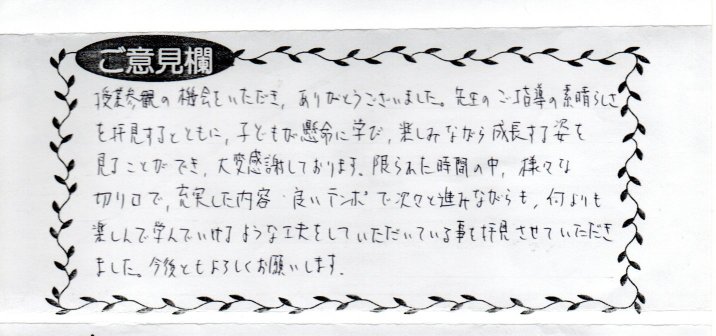 ご意見欄
授業参観の機会をいただき、ありがとうございました。先生のご指導の素晴らしさ
を拝見するとともに、子どもが懸命に学び、楽しみながら成長する姿を
見ることができ、大変感謝しております。限られた時間の中、様々な
切り口で、充実した内容・良いテンポで次々と進みながらも、何よりも
楽しんで学んでいけるような工夫をしていただいている事を拝見させていただき
ました。今後ともよろしくお願いします。